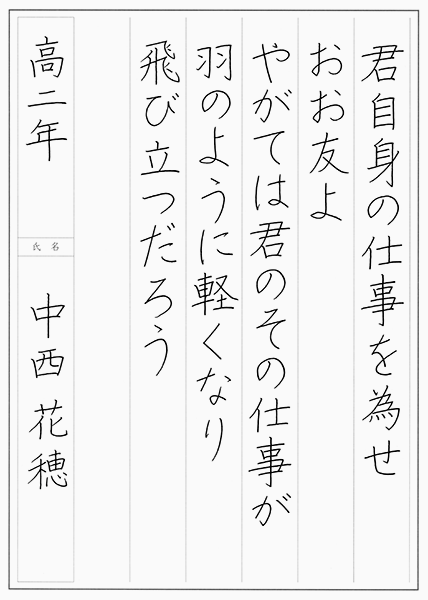 君自身の仕事を為せ
おお友よ
やがては君のその仕事が
羽のように軽くなり
飛び立つだろう
高二年
氏名
中西花穂